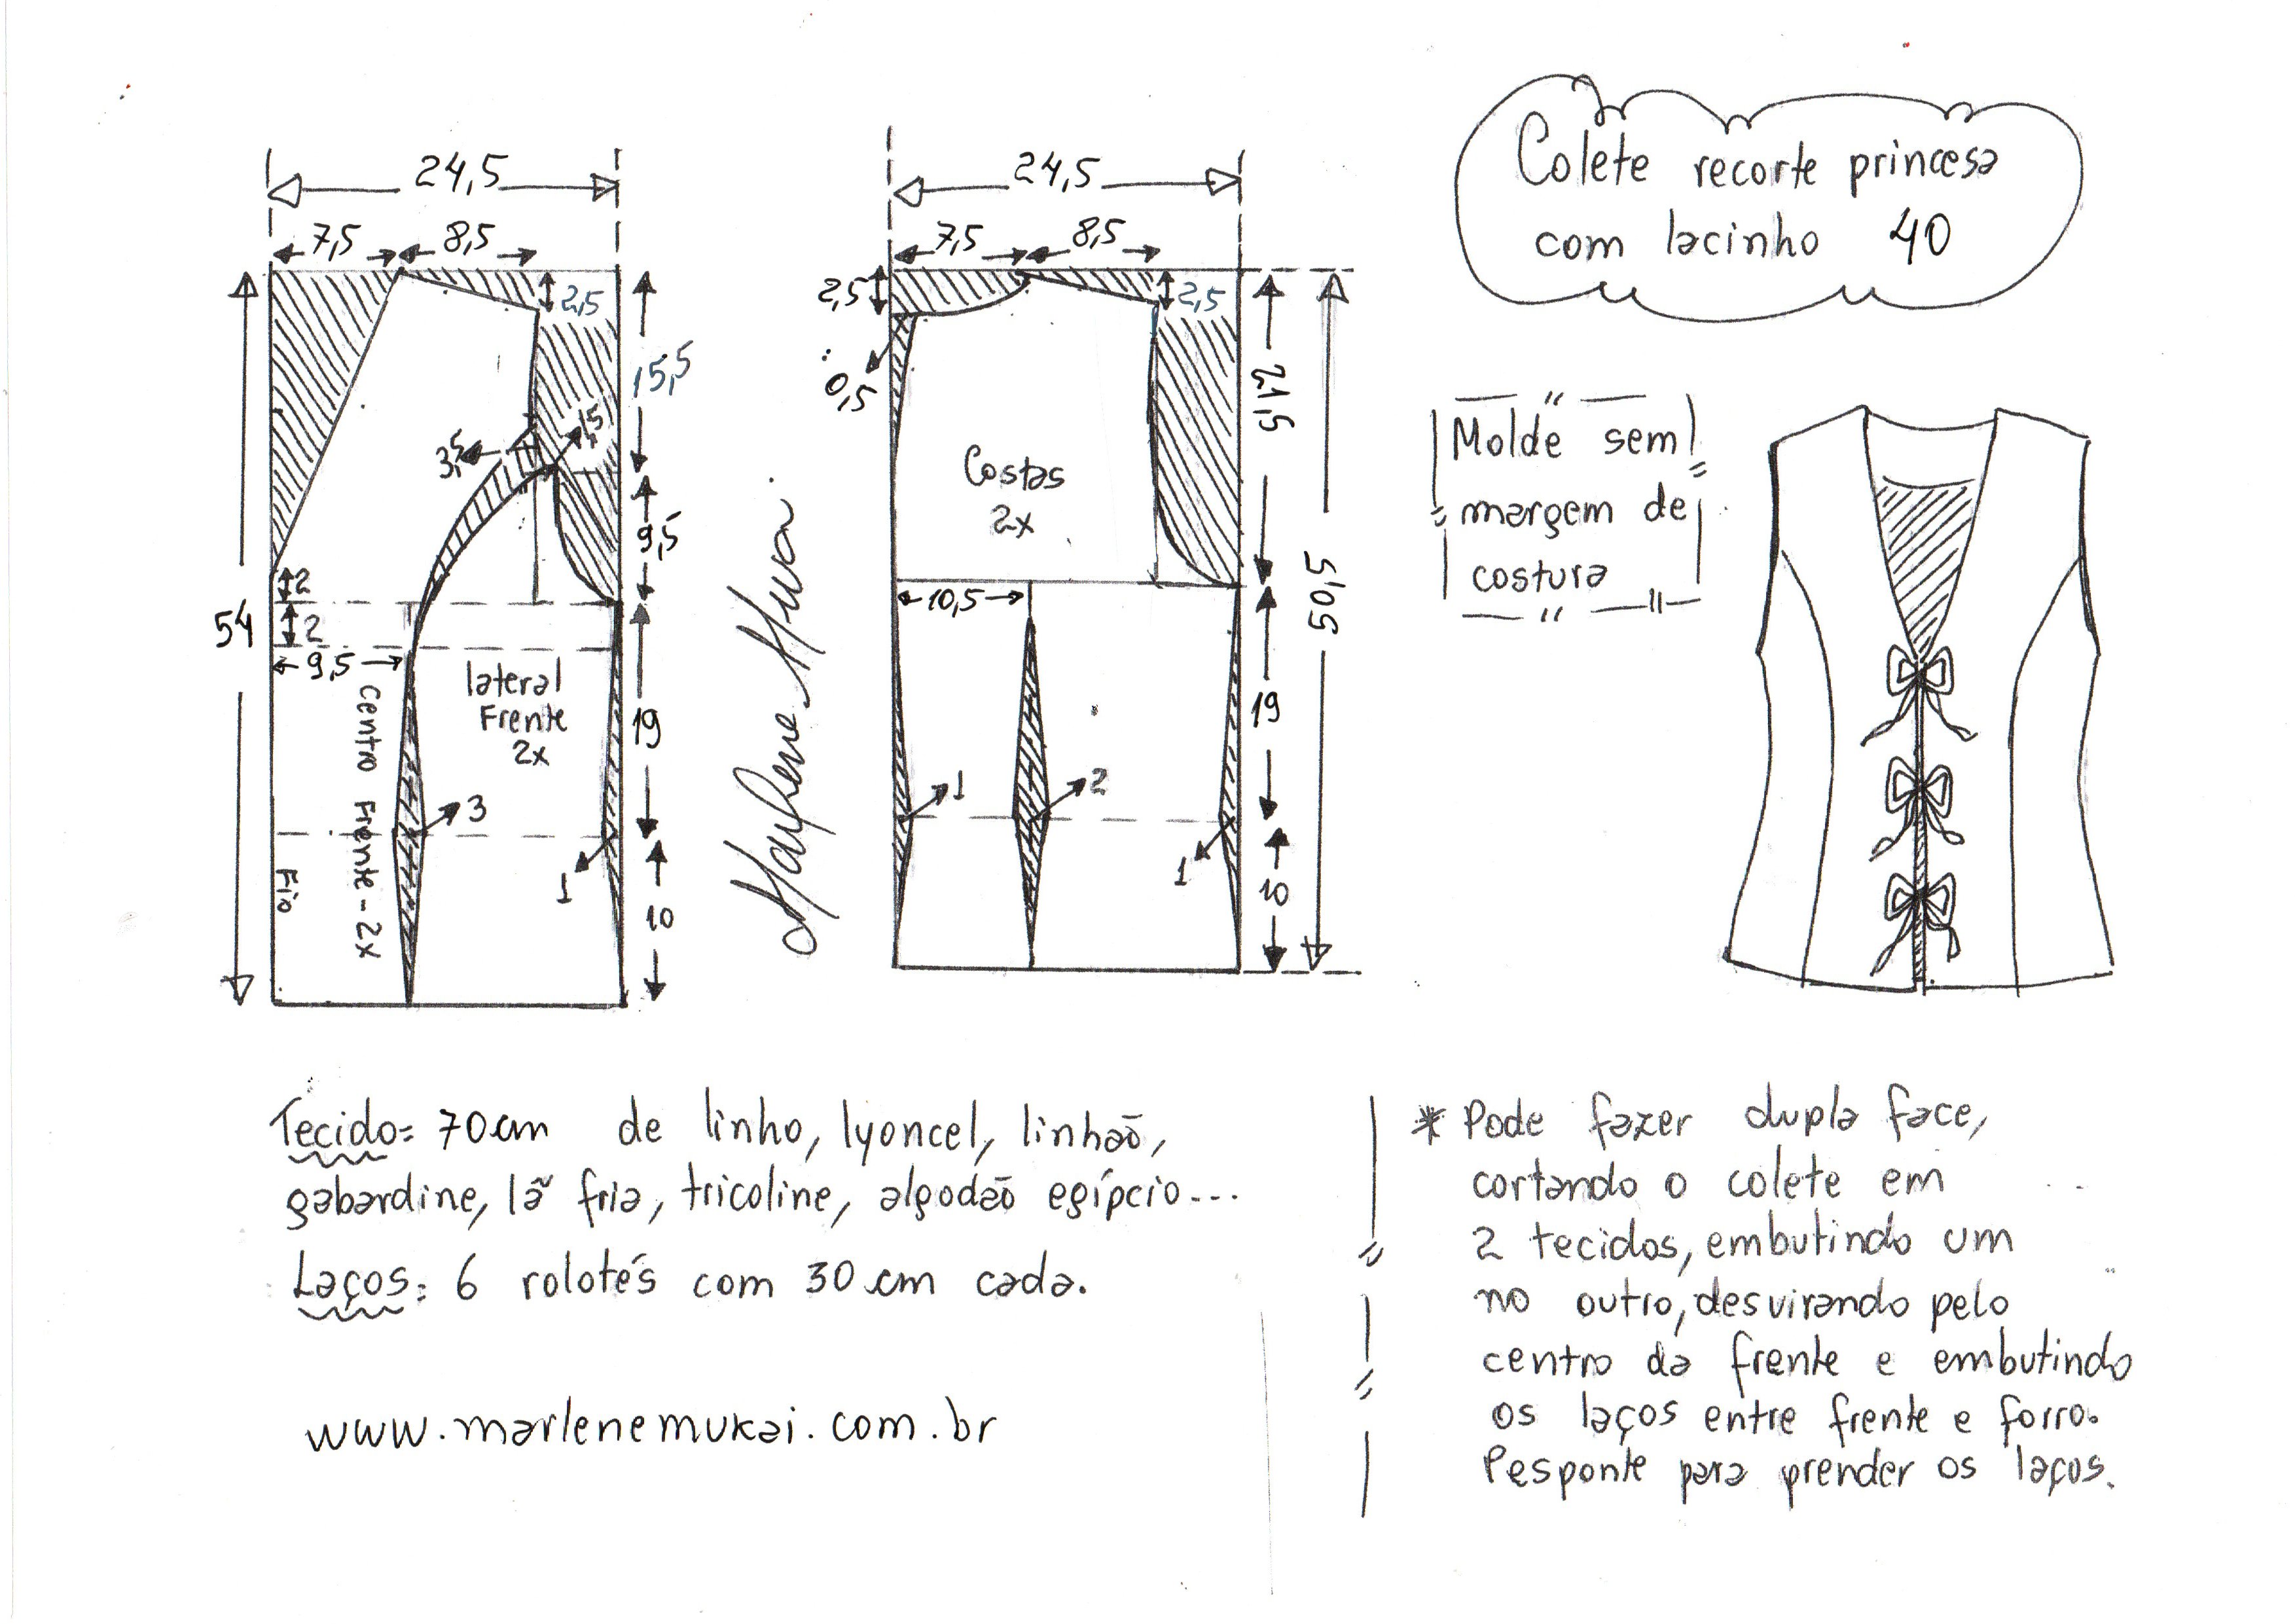 Colete recorte princesa
com lacinho 40
24,5
7,5
8,5
2,5
15,5
1,5
3,5
9,5
2
2
54
9,5
lateral
Frente
2x
Centro Frente - 2x
Fio
19
3
1
10
Marlene Mukai
24,5
7,5
8,5
2,5
2,5
0,5
21,5
Costas
2x
50,5
10,5
19
1
2
1
10
Molde sem
margem de
costura
Tecido= 70cm de linho, lyoncel, linhão,
gabardine, lã fria, tricoline, algodão egípcio...
Laços: 6 rolotés com 30 cm cada.
www.marlenemukai.com.br
* Pode fazer dupla face,
cortando o colete em
2 tecidos, embutindo um
no outro, desvirando pelo
centro da frente e embutindo
os laços entre frente e forro.
Pesponte para prender os laços.